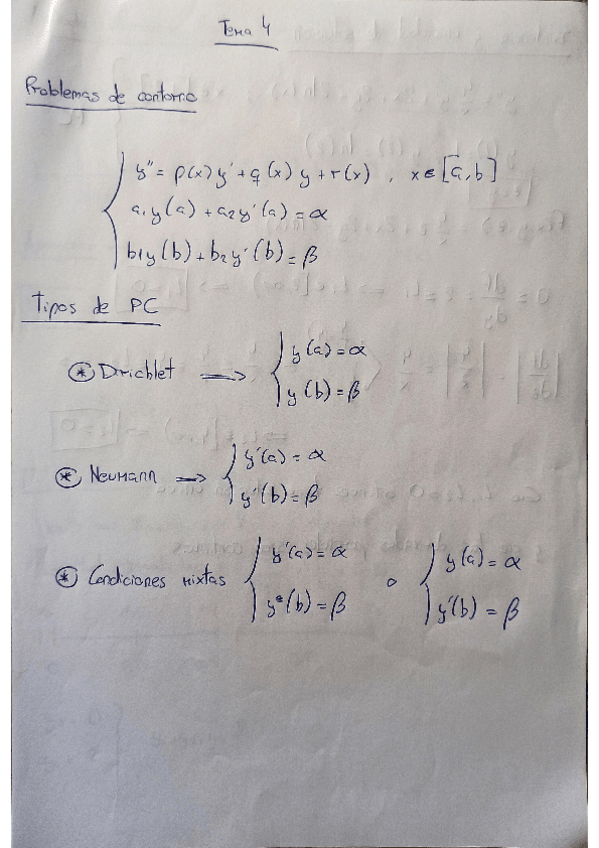 Tema 4
Problemas de contorno
y'' = p(x) y' + q(x) y + r(x) , x ∈ [a, b]
a₁y(a) + a₂y'(a) = α
b₁y(b) + b₂y'(b) = β
Tipos de PC
* Diricblet → { y(a) = α
y(b) = β
* Neumann → { y'(a) = α
y'(b) = β
* Condiciones mixtas { y'(a) = α o { y(a) = α
y(b) = β y'(b) = β